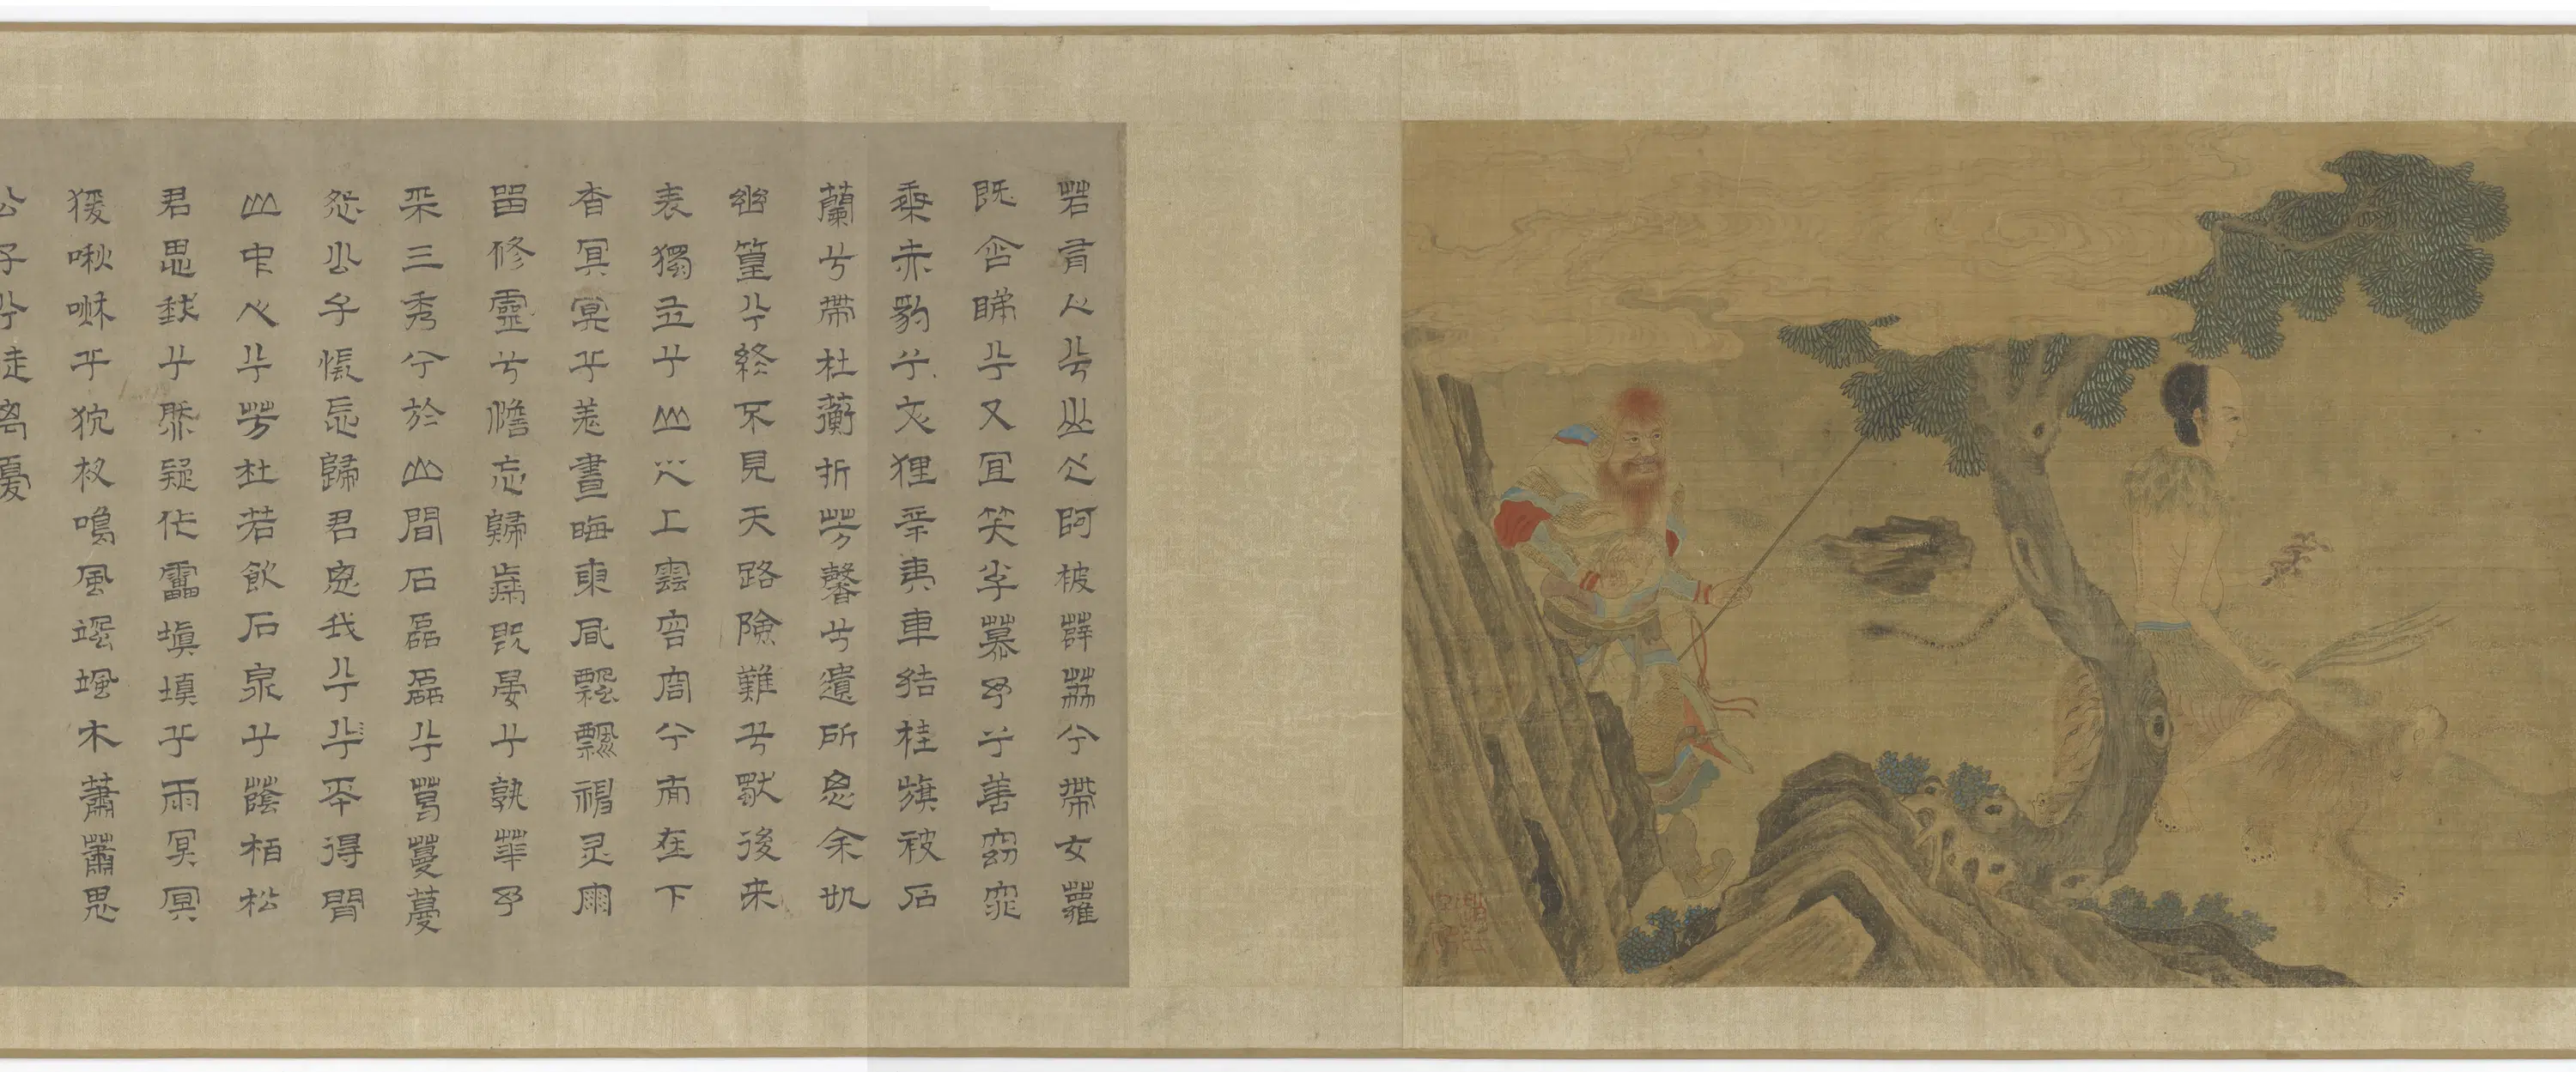 若有人兮山之阿被薜荔兮帶女蘿
既含睇兮又宜笑子慕予兮善窈窕
乘赤豹兮文狸辛夷車結桂旗被石
蘭兮帶杜蘅折芳馨兮遺所思余処
幽篁兮終不見天路險難兮獨後来
表獨立兮山之上雲容容兮而在下
杳冥冥兮羌晝晦東風飄飄神灵雨
留修靈兮憺忘歸歲既晏兮孰華予
采三秀兮於山間石磊磊兮葛蔓蔓
怨公子悵忘歸君思我兮兮不得閒
山中人兮芳杜若飲石泉兮蔭栢松
君思我兮然疑作靁填填兮雨冥冥
猨啾啾兮狖夜鳴風颯颯木蕭蕭思
公子兮徒離憂